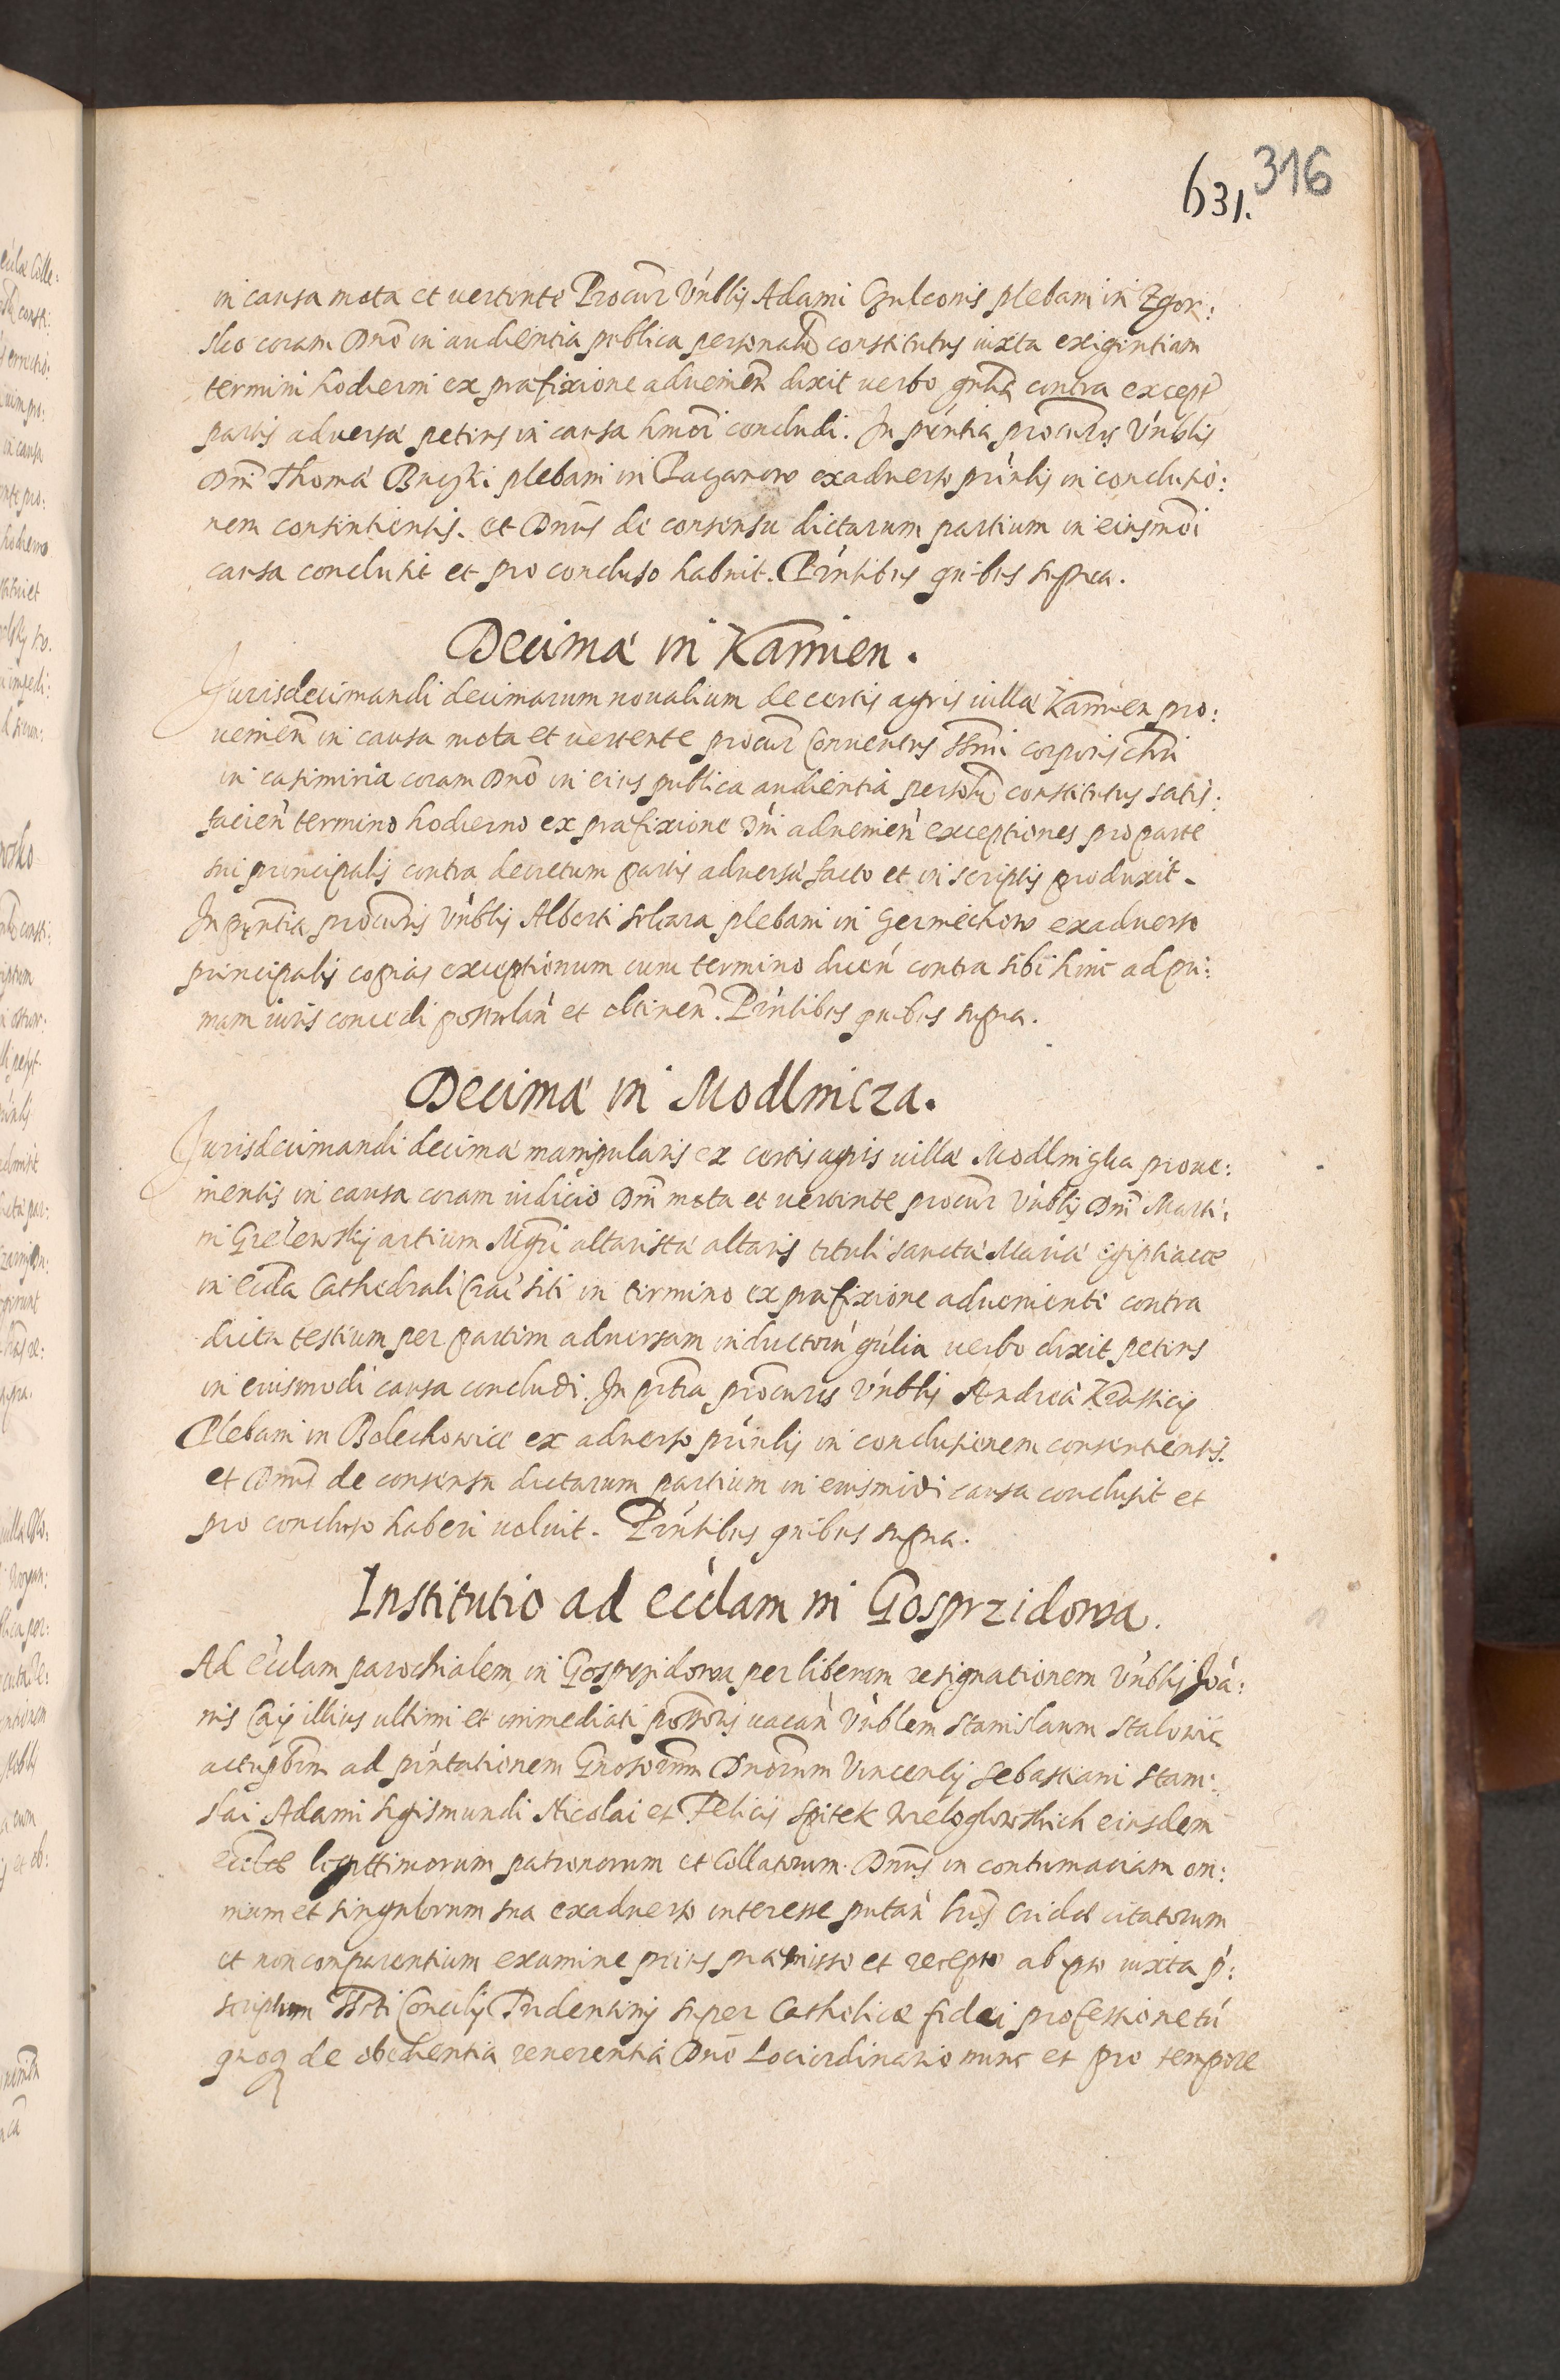 631. 316
in causa mota et vertente Procur Vnblis Adami Gulconis plebani in Zgor:
sko coram Dno in audientia publica personalr constitutus iuxta exigentiam
termini hodierni ex præfixione advenien dixit verbo gnlia contra except
partis adversæ petens in causa hmoi concludi. In pntia procuris Vnblis
Dni Thomæ Buczki plebani in Paczanow exadverso prinlis in conclusio:
nem consentientis. et Dnus de consensu dictarum partium in eiusmoi
causa conclusit et pro concluso habuit. Pntibus quibus supra.
Decimæ in Kamien.
Jurisdecimandi decimarum novalium de certis agris villæ Kamien pro:
venien in causa mota et vertente procur Conventus SSmi corporis Chri
in Casimiria coram Dno in eius publica audientia personlr constitutus satis:
facien termino hodierno ex præfixione Dni advenien exceptiones pro parte
sui principalis contra decretum partis adversæ facto et in scriptis produxit.
In pntia procuris Vnblis Alberti plebani in Germichow exadverso
principalis copias exceptionum cum termino dicen contra sibi hinc ad pri:
mam iuris concedi postulan et obtinen. Pntibus quibus supra.
Decimæ in Modlnicza.
Jurisdecimandi decimæ manipularis ex certis agris villæ Modlniczka prove:
nientis in causa coram iudicio Dni mota et vertente procur Vnblis Dni Marti:
ni Grelewskij artium Mgri altaristæ altaris tituli sanctæ Mariæ Egiptiacæ
in eccla Cathedrali Crac siti in termino ex præfixione adveniente contra
dicta testium per partem adversam inductorum gnlia verbo dixit petens
in eiusmodi causa concludi. In pntia procuris Vnblis Andreæ Krassicij
Plebani in Bolechowice ex adverso prinlis in conclusionem consentientis.
et Dnus de consensu dictarum partium in eiusmodi causa conclusit et
pro concluso haberi voluit. Pntibus quibus supra.
Institutio ad ecclam in Gosprzidowa.
Ad ecclam parochialem in Gosprzidowa per liberam resignationem Vnblis Joa:
nis Caij illius ultimi et immediati possoris vacan Vnblem Stanislaum Stalowic
actu pbrm ad pntationem Gnosorum Dnorum Vincentij Sebastiani Stani:
slai Adami Sigismundi Nicolai et Felicis Spitek Wieloglowskich eiusdem
ecclæ legittimorum patronorum et Collatorum Dnus in contumaciam om:
nium et singulorum sua exadverso interesse putan citatorum
et non comparentium examine prius præmisso et recepto ab ipso iuxta p:
scriptum SScti Concilij Tridentinj super Catholicæ fidei professione tum
quoq de obedientia reverentia Dno Lociordinario nunc et pro tempore